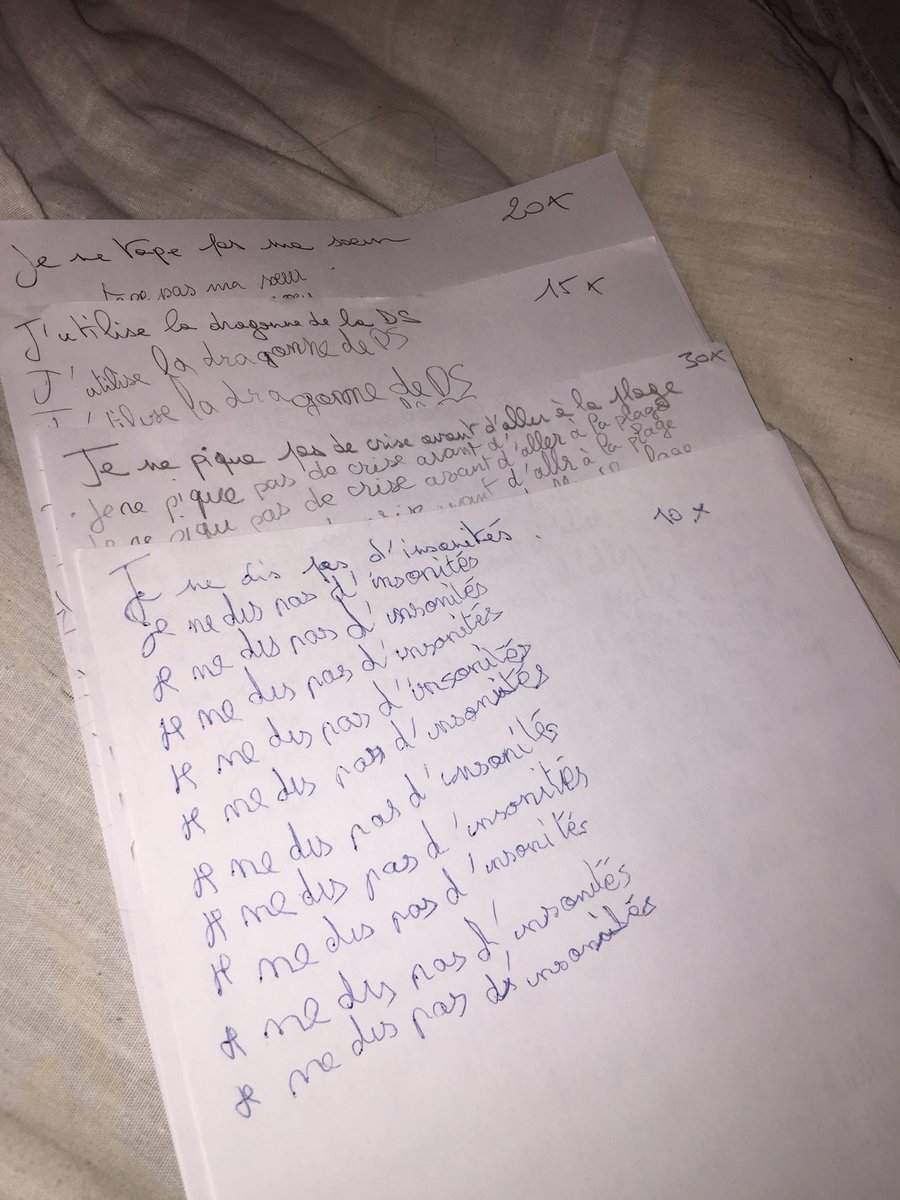 Je ne tape pas ma sœur 20x
tape pas ma sœur
J'utilise la dragonne de la DS 15x
J'utilise la dragonne de DS
J'utilise la dragonne de DS
Je ne pique pas de crise avant d'aller à la plage 30x
Je ne pique pas de crise avant d'aller à la plage
Je ne piqu pas de crise avant d'allr à la plage
Je ne dis pas d'insanités. 10x
Je ne dis pas d'insonités
Je ne dis pas d'insonités
Je ne dis pas d'insonités
Je ne dis pas d'insonités
Je ne dis pas d'insonités
Je ne dis pas d'insonités
Je ne dis pas d'insonités
Je ne dis pas d'insonités
Je ne dis pas d'insonités
Je ne dis pas d'insonités